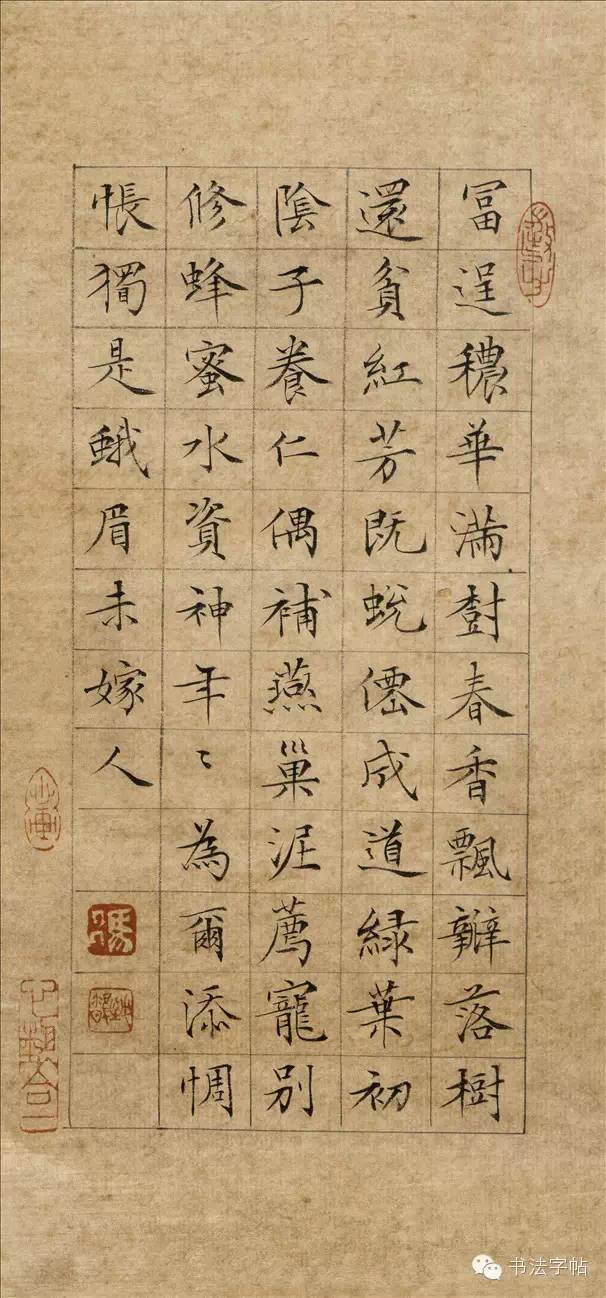 冨逞穠華滿樹春香飄瓣落樹
還貧紅芳既蛻僊成道緑葉初
陰子養仁偶補燕巢泥薦寵別
修蜂蜜水資神年〻為爾添惆
悵獨是蛾眉未嫁人
书法字帖